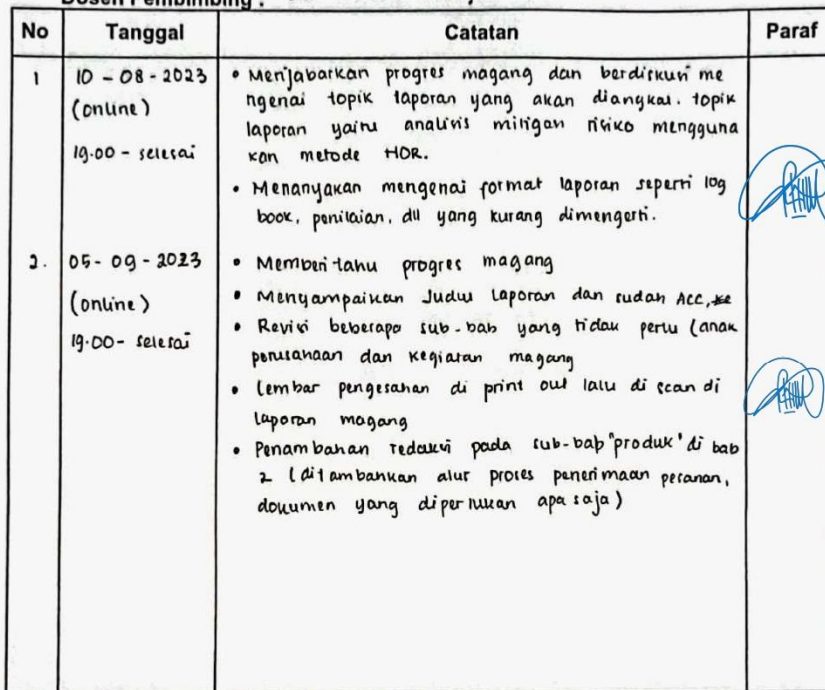 Dosen Pembimbing :
No Tanggal Catatan Paraf
1 10 - 08 - 2023 • Menjabarkan progres magang dan berdiskusi me
(online) ngenai topik laporan yang akan diangkat. topik
laporan yaitu analisis mitigasi risiko mengguna
19.00 - selesai kan metode HOR.
• Menanyakan mengenai format laporan seperti log
book, penilaian, dll yang kurang dimengerti.
2. 05 - 09 - 2023 • Memberi tahu progres magang
(online) • Menyampaikan Judul Laporan dan sudah ACC,
19.00 - selesai • Revisi beberapa sub-bab yang tidak perlu (anak
perusahaan dan kegiatan magang
• Lembar pengesahan di print out lalu di scan di
laporan magang
• Penambahan redaksi pada sub-bab "produk" di bab
2 (ditambahkan alur proses penerimaan pesanan,
dokumen yang diperlukan apa saja)